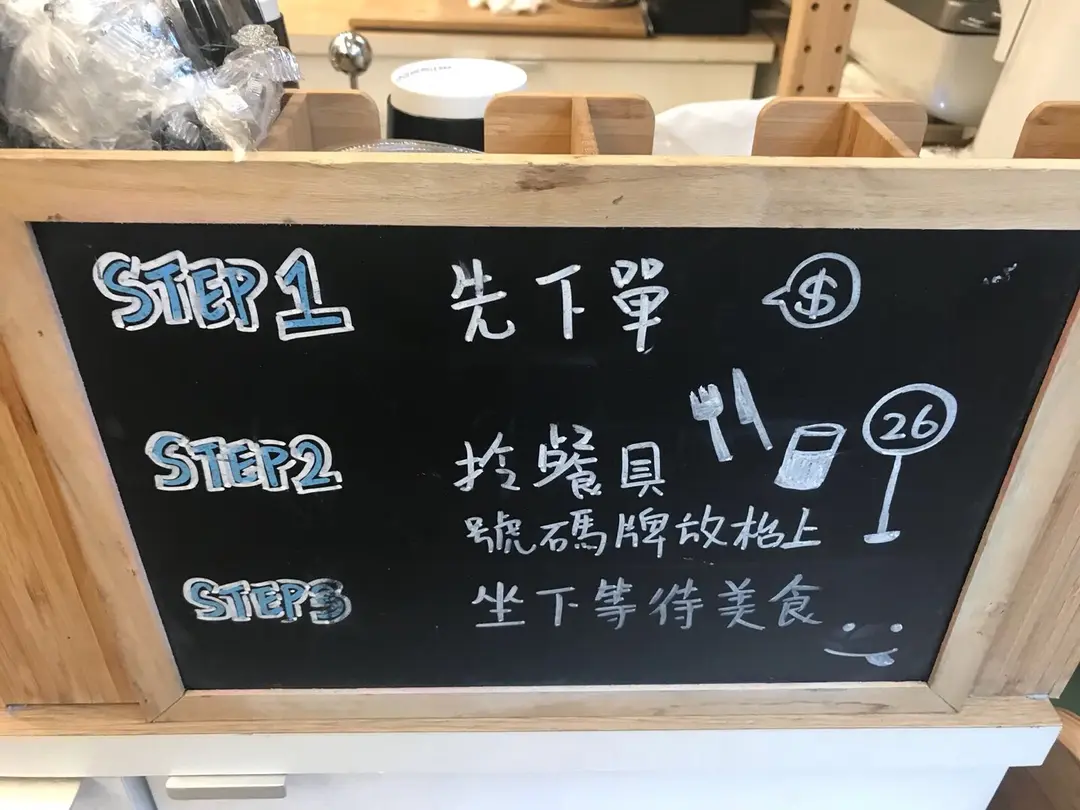 STEP 1 先下單 $
STEP2 拎餐具 26
號碼牌放枱上
STEP3 坐下等待美食